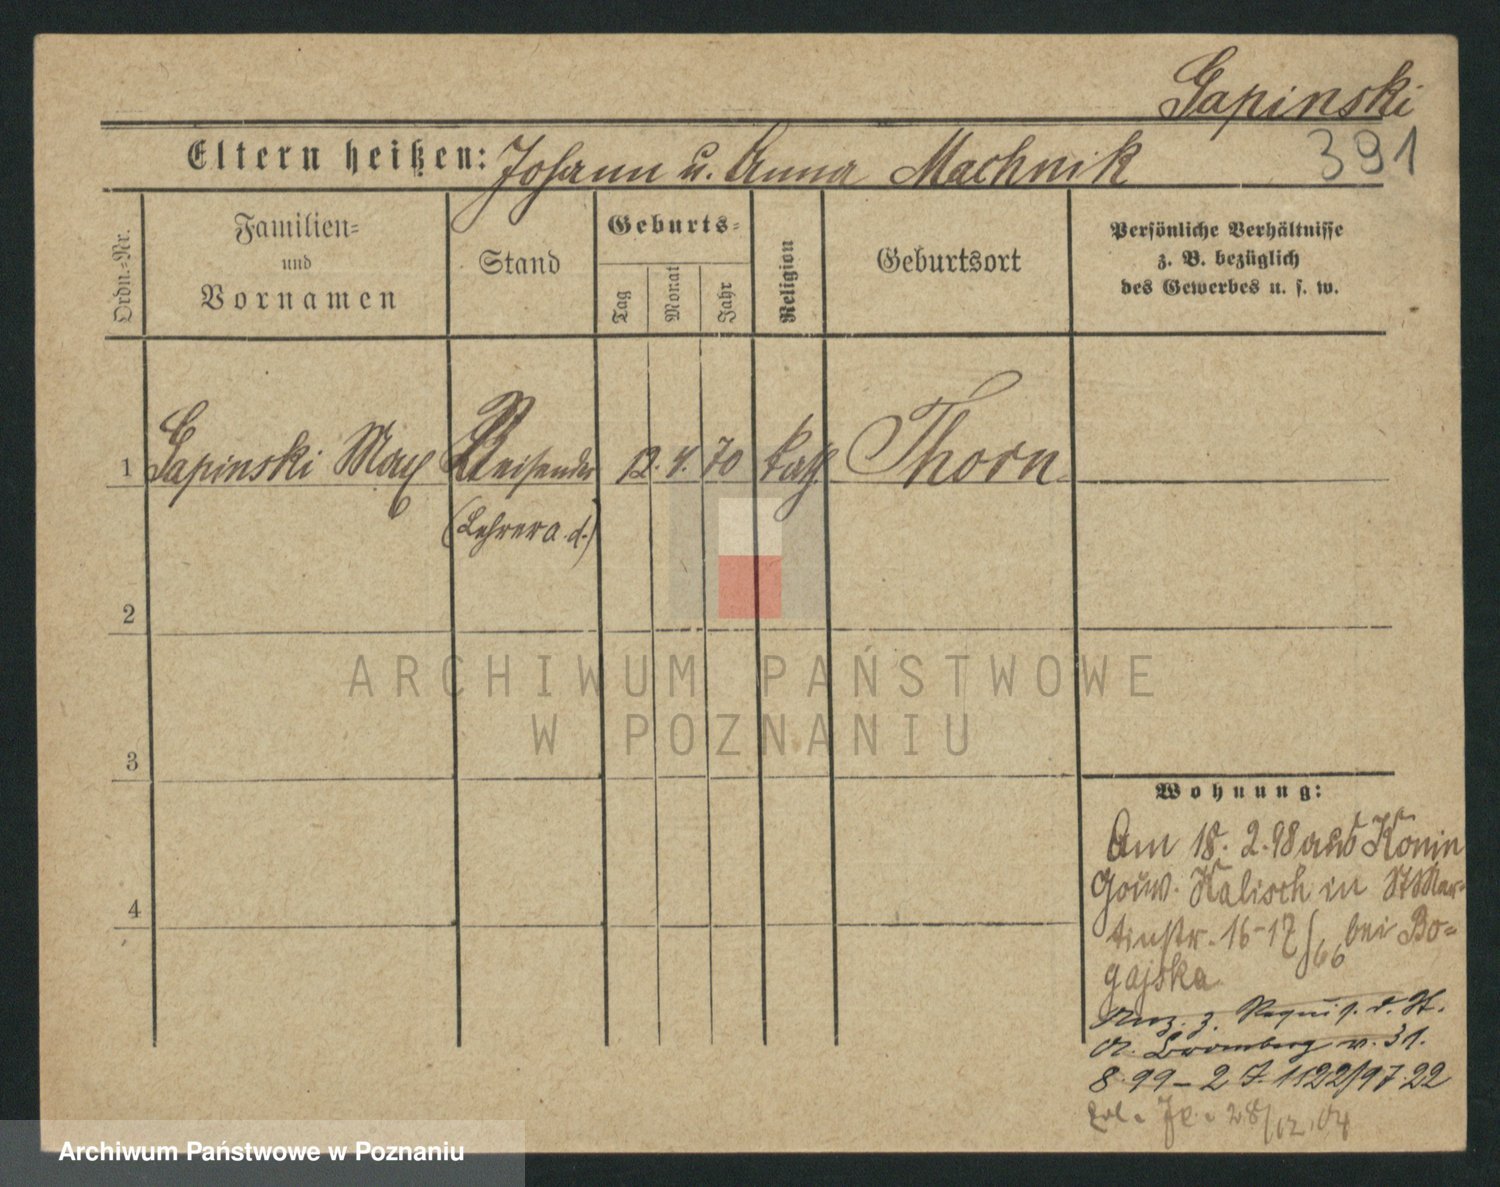 Gapinski
391
Eltern heißen: Johann u. Anna Machnik
Ordn.=Nr.
Familien=
und
Vornamen
Stand
Geburts=
Tag
Monat
Jahr
Religion
Geburtsort
Persönliche Verhältnisse
z. B. bezüglich
des Gewerbes u. s. w.
1 Gapinski Max Reisender 12. 4. 70 kath. Thorn
(Lehrer a. d.)
2
3
4
ARCHIWUM PAŃSTWOWE
W POZNANIU
Wohnung:
Am 18. 2. 98 aus Konin
Gouv. Kalisch in St Mar-
tinstr. 16-17/66 bei Bo=
gajska
z. Requis. d. St.
A. Bromberg v. 31.
8. 99 – 2 J. 1122/97.22
28/12.04
Archiwum Państwowe w Poznaniu